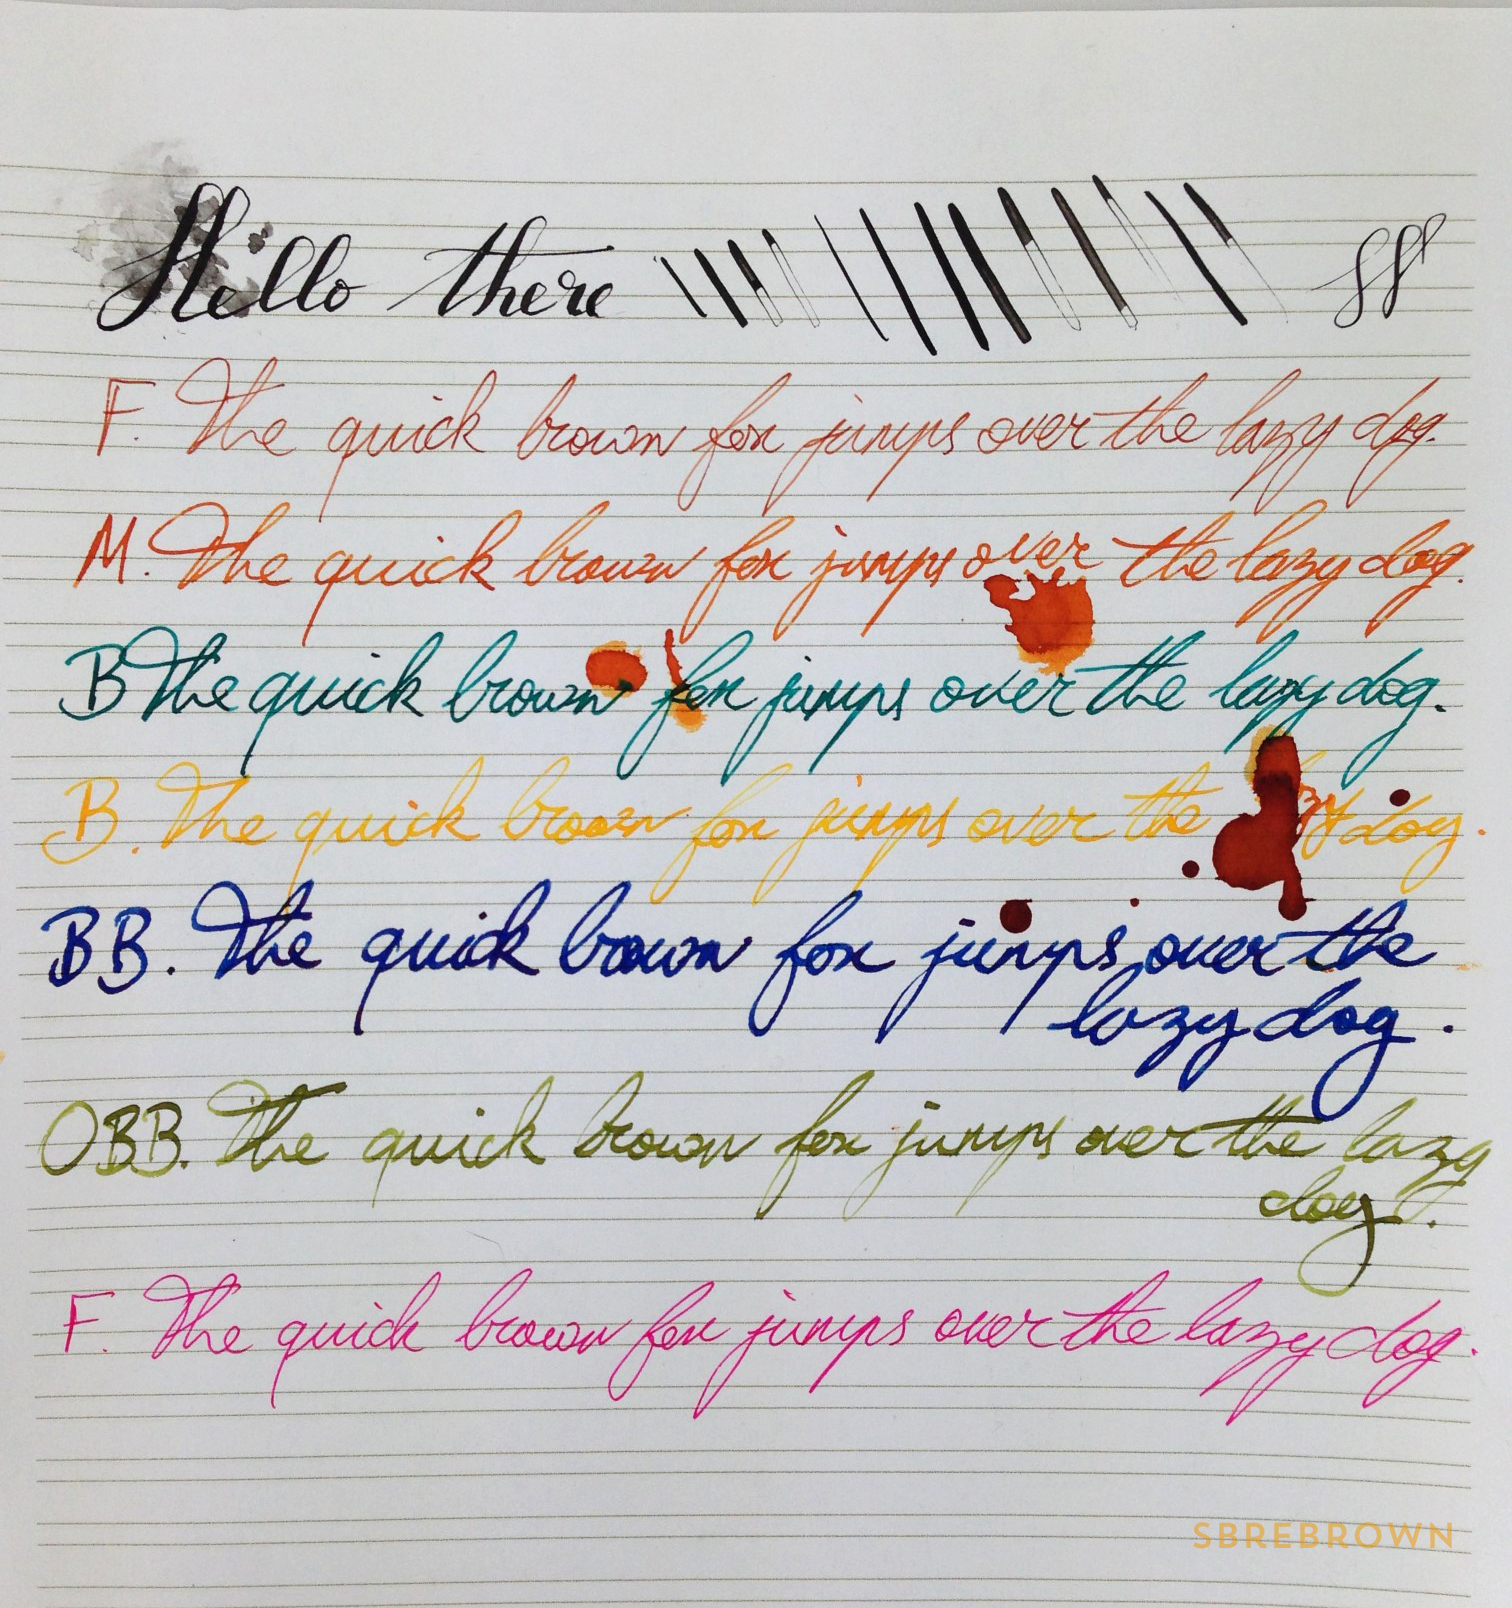 Hello there ff
F. The quick brown fox jumps over the lazy dog.
M. The quick brown fox jumps over the lazy dog.
B The quick brown fox jumps over the lazy dog.
B. The quick brown fox jumps over the dog.
BB. The quick brown fox jumps over the
lazy dog.
OBB. The quick brown fox jumps over the lazy
dog.
F. The quick brown fox jumps over the lazy dog.
SBREBROWN